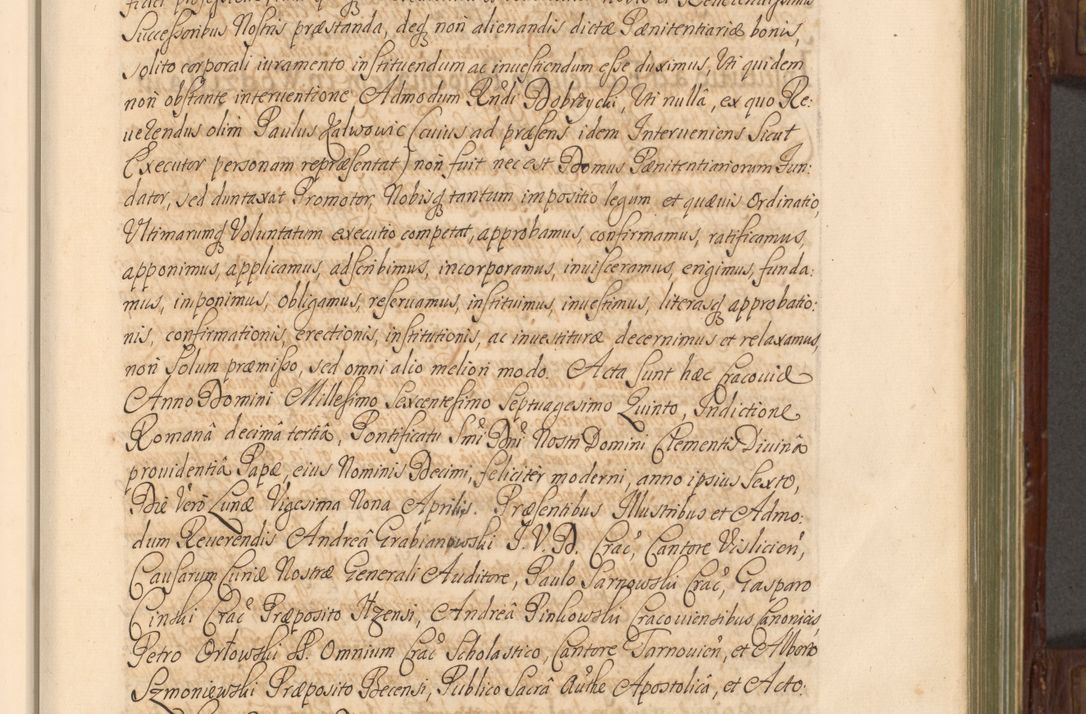 Successoribus Nostris præstanda, deq́ꝫ non alienandis dictæ Pænitentiariæ bonis,
solito corporali iuramento instituendum ac inuestiendum esse duximus, Uti quidem
non obstante interuentione Admodum Rńdi Dobrzycki, Uti nullâ, ex quo Re:
uerendus olim Paulus Zalwowic (cuius ad præsens idem Interueniens sicut
Executor personam repræsentat) non fuit nec est Domus Pænitentiariorum Fun:
dator, sed duntaxat Promotor Nobisq́ꝫ tantum impositio legum et quæuis Ordinatio,
Ultimarumq́ꝫ Voluntatum executio competat, approbamus, confirmamus, ratificamus,
apponimus, applicamus, adscribimus, incorporamus, inuisceramus, erigimus, funda:
mus, imponimus, obligamus, reseruamus, instituimus, inuestimus, literasq́ꝫ approbatio:
nis, confirmationis, erectionis, institutionis, ac inuestituræ decernimus et relaxamus,
non solum præmisso, sed omni alio meliori modo. Acta sunt hæc Cracouiæ
Anno Domini Millesimo Sexcentesimo Septuagesimo Quinto, Indictione
Romanâ decimâ tertiâ, Pontificatu Smi Dni Nostri Domini Clementis Diuinâ
prouidentiâ Papæ, eius Nominis Decimi, feliciter moderni, anno ipsius Sexto,
Die Verò Lunæ Vigesima Nona Aprilis. Præsentibus Illustribus et Admo:
dum Reuerendis Andreâ Grabianowski J. V. D. Crac̃, Cantore Vislicień,
Causarum Curiæ Nostræ Generali Auditore, Paulo Sarnowski Crac̃, Gasparo
Cinski Crac̃ Præposito Ilzensi, Andreâ Pinkowski Cracouiensibus Canonicis,
Petro Orłowski SS. Omnium Crac̃ Scholastico, Cantore Tarnouicń, et Alberto
Szmoniewski Præposito Becensi, Publico Sacrâ Authe Apostolicâ, et Acto: